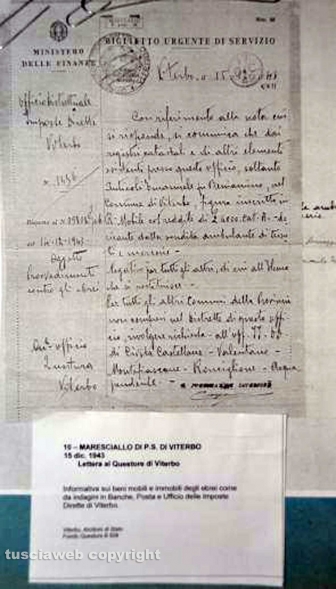 Mod. 88
MINISTERO
DELLE FINANZE
BIGLIETTO URGENTE DI SERVIZIO
Viterbo, 15
Ufficio Distrettuale
Imposte Dirette
Viterbo
N. 1486
Oggetto
Provvedimenti
contro gli ebrei
On. Ufficio
Questura
Viterbo
Con riferimento alla nota cui
si risponde, si comunica che dai
registri catastali e di altri elementi
esistenti presso questo ufficio, soltanto
Emanuele fu Beniamino, nel
Comune di Viterbo, figura inscritto in
R. Mobile col reddito di 2000. Cat. B. de-
rivante dalla vendita ambulante di tessu
ti e mercerie.
Negativo per tutti gli altri, di cui all'elenco
che si restituisce.
Per tutti gli altri Comuni della Provincia
non compresi nel distretto di questo uffi
cio, rivolgere richiesta all'Uff. II. DD.
di Civita Castellana - Valentano -
Montefiascone - Ronciglione - Acqua
pendente -
16 – MARESCIALLO DI P.S. DI VITERBO
15 dic. 1943
Lettera al Questore di Viterbo
Informativa sui beni mobili e immobili degli ebrei come
da indagini in Banche, Posta e Ufficio delle Imposte
Dirette di Viterbo.
Viterbo, Archivio di Stato
Fondo Questura
tusciaweb copyright